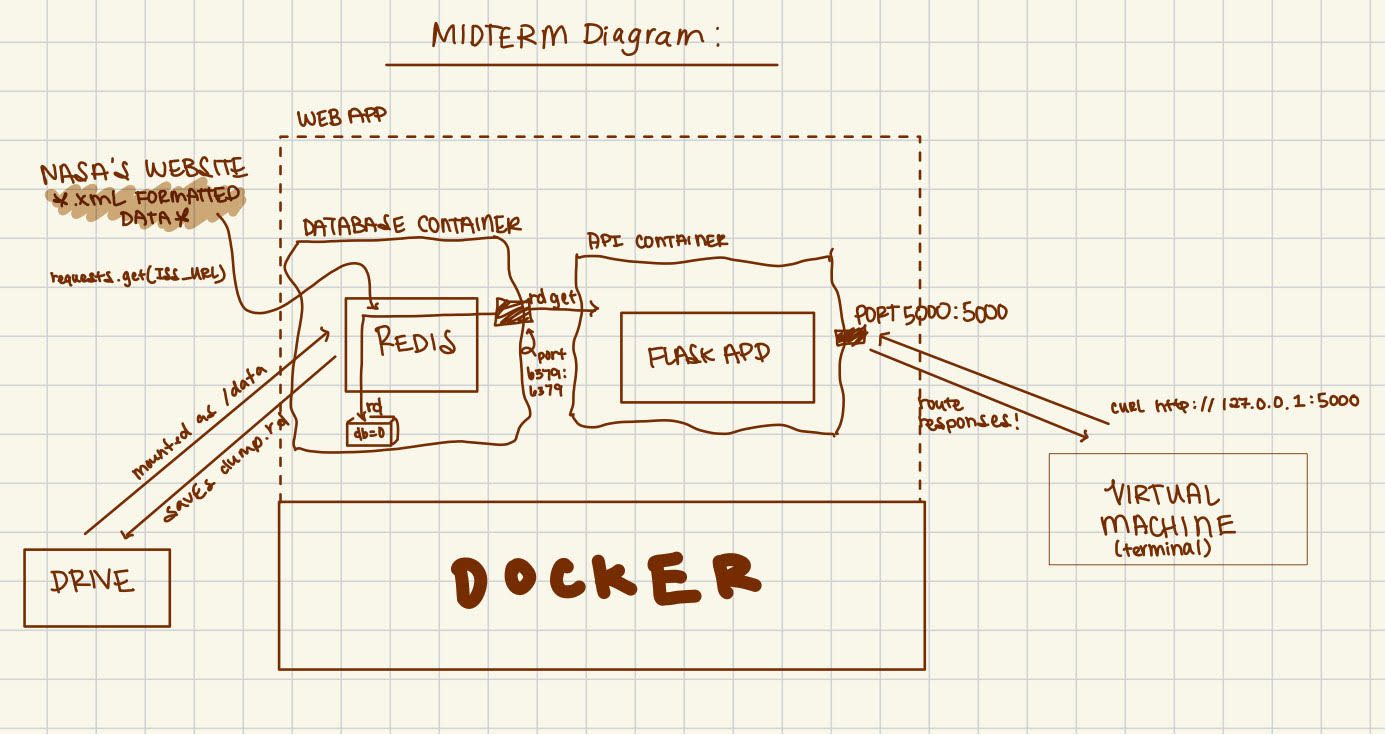 MIDTERM Diagram:
WEB APP
NASA'S WEBSITE
*.XML FORMATTED
DATA*
requests.get(ISS_URL)
DATABASE CONTAINER
API CONTAINER
REDIS
rd get
port
6379:
6379
rd
db=0
FLASK APP
PORT 5000:5000
route
responses!
curl http://127.0.0.1:5000
mounted as /data
saves dump.rd
DRIVE
DOCKER
VIRTUAL
MACHINE
(terminal)